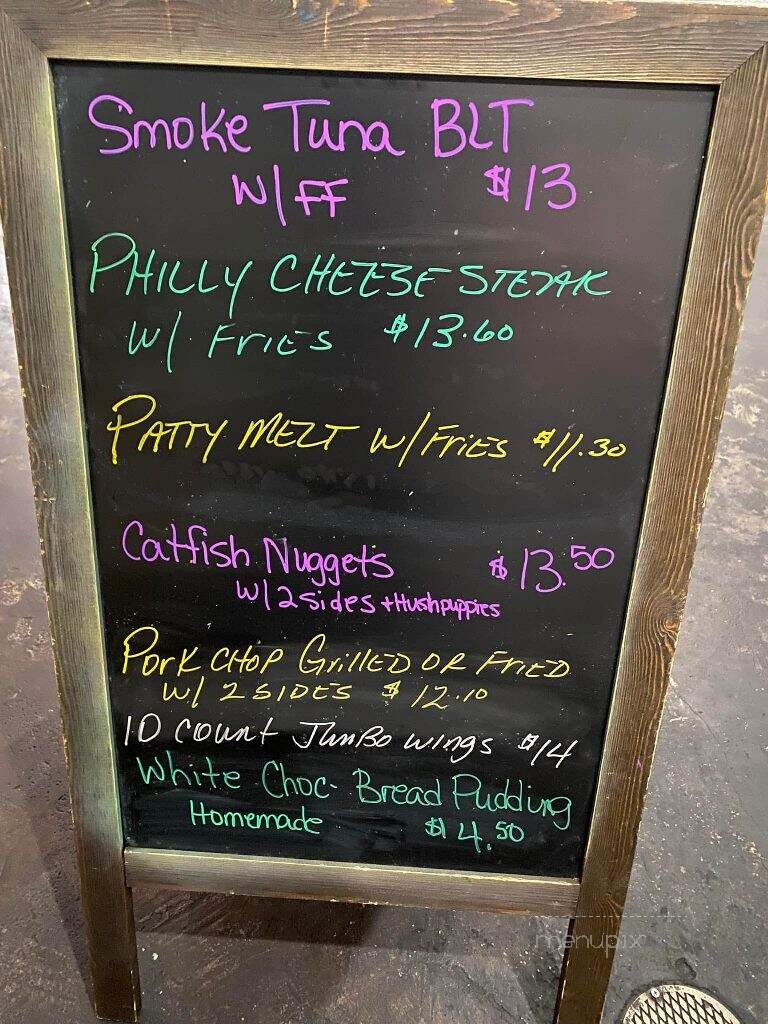 Smoke Tuna BLT
W/FF $13
PHILLY CHEESE STEAK
W/ FRIES $13.60
PATTY MELT W/FRIES $11.30
Catfish Nuggets $13.50
W/2 Sides + Hushpuppies
PORK CHOP GRILLED OR FRIED
W/ 2 SIDES $12.10
10 COUNT JUMBO WINGS $14
White Choc- Bread Pudding
Homemade $4.50
menupix